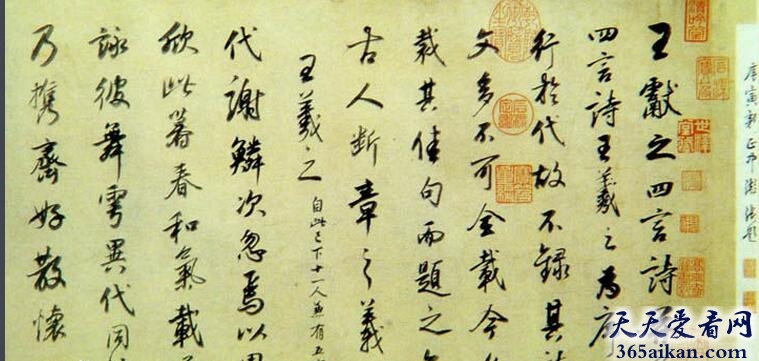 王獻之四言詩
四言詩王羲之為序
行於代故不錄其詩
文多不可全載今
裁其佳句而題之
古人斷章之義
王羲之
自此已下十一人
代謝鱗次忽焉以周
欣此暮春和氣載
詠彼舞雩異代同
乃攜齊好散懷
天天爱看网
365aikan.com